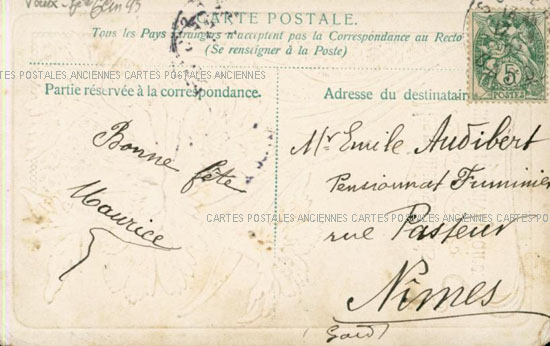 CARTE POSTALE.
Tous les Pays étrangers n'acceptent pas la Correspondance au Recto
(Se renseigner à la Poste)
CARTES POSTALES ANCIENNES CARTES POSTALES ANCIENNES CARTES POSTALES ANCIENNES CARTES POSTALES
Partie réservée à la correspondance.
Bonne fête
Maurice
Adresse du destinatair
5
POSTES
Mr Emile Audibert
Pensionnat
CARTES POSTALES ANCIENNES CARTES POSTALES ANCIENNES CARTES POSTALES
rue Pasteur
Nîmes
(Gard)